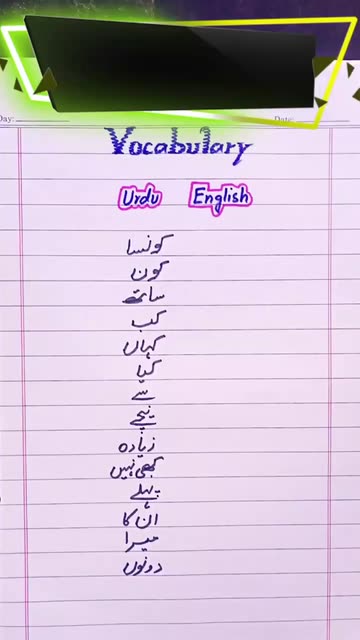 Day:
Date:
Vocabulary
Urdu English
کونسا
کون
ساتھ
کب
کہاں
کیا
سے
نیچے
زیادہ
کبھی نہیں
پہلے
ان کا
میرا
دونوں